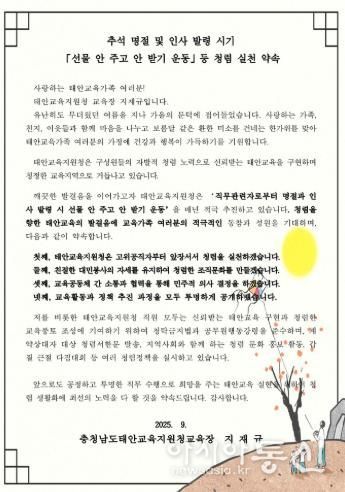 추석 명절 및 인사 발령 시기
「선물 안 주고 안 받기 운동」등 청렴 실천 약속
사랑하는 태안교육가족 여러분!
태안교육지원청 교육장 지재규입니다.
유난히도 무더웠던 여름을 지나 가을의 문턱에 접어들었습니다. 사랑하는 가족,
친지, 이웃들과 함께 마음을 나누고 보름달 같은 환한 미소를 건네는 한가위를 맞아
태안교육가족 여러분의 가정에 건강과 행복이 가득하기를 기원합니다.
태안교육지원청은 구성원들의 자발적 청렴 노력으로 신뢰받는 태안교육을 구현하며
청정한 교육지역으로 거듭나고 있습니다.
깨끗한 발걸음을 이어가고자 태안교육지원청은 '직무관련자로부터 명절과 인
사 발령 시 선물 안 주고 안 받기 운동'을 매년 적극 추진하고 있습니다. 청렴을
향한 태안교육의 발걸음에 교육가족 여러분의 적극적인 동참과 성원을 기대하며,
다음과 같이 약속합니다.
첫째, 태안교육지원청은 고위공직자부터 앞장서서 청렴을 실천하겠습니다.
둘째, 친절한 대민봉사의 자세를 유지하여 청렴한 조직문화를 만들겠습니다.
셋째, 교육공동체 간 소통과 협력을 통해 민주적 의사 결정을 하겠습니다.
넷째, 교육활동과 정책 추진 과정을 모두 투명하게 공개하겠습니다.
저를 비롯한 태안교육지원청 직원 모두는 신뢰받는 태안교육 구현과 청렴한
교육풍토 조성에 기여하기 위하여 청탁금지법과 공무원행동강령을 준수하며, 계
약상대자 대상 청렴서한문 발송, 지역사회와 함께 하는 청렴 문화 홍보 활동, 갑
질 근절 다짐대회 등 여러 청렴정책을 실시하고 있습니다.
앞으로도 공정하고 투명한 직무 수행으로 희망을 주는 태안교육 실현을 위하여 청
렴 생활화에 최선의 노력을 다 할 것을 약속드립니다. 감사합니다.
2025. 9.
충청남도태안교육지원청교육장 지 재 규
아시아통신
www.newsasia.kr